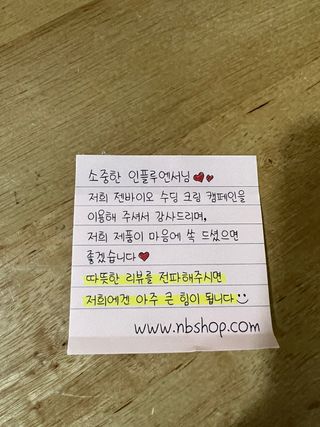 소중한 인플루언서님
저희 전바이오 수딩 크림 캠페인을
이용해 주셔서 감사드리며,
저희 제품이 마음에 쏙 드셨으면
좋겠습니다
따뜻한 리뷰를 전파해주시면
저희에겐 아주 큰 힘이 됩니다
www.nbshop.com